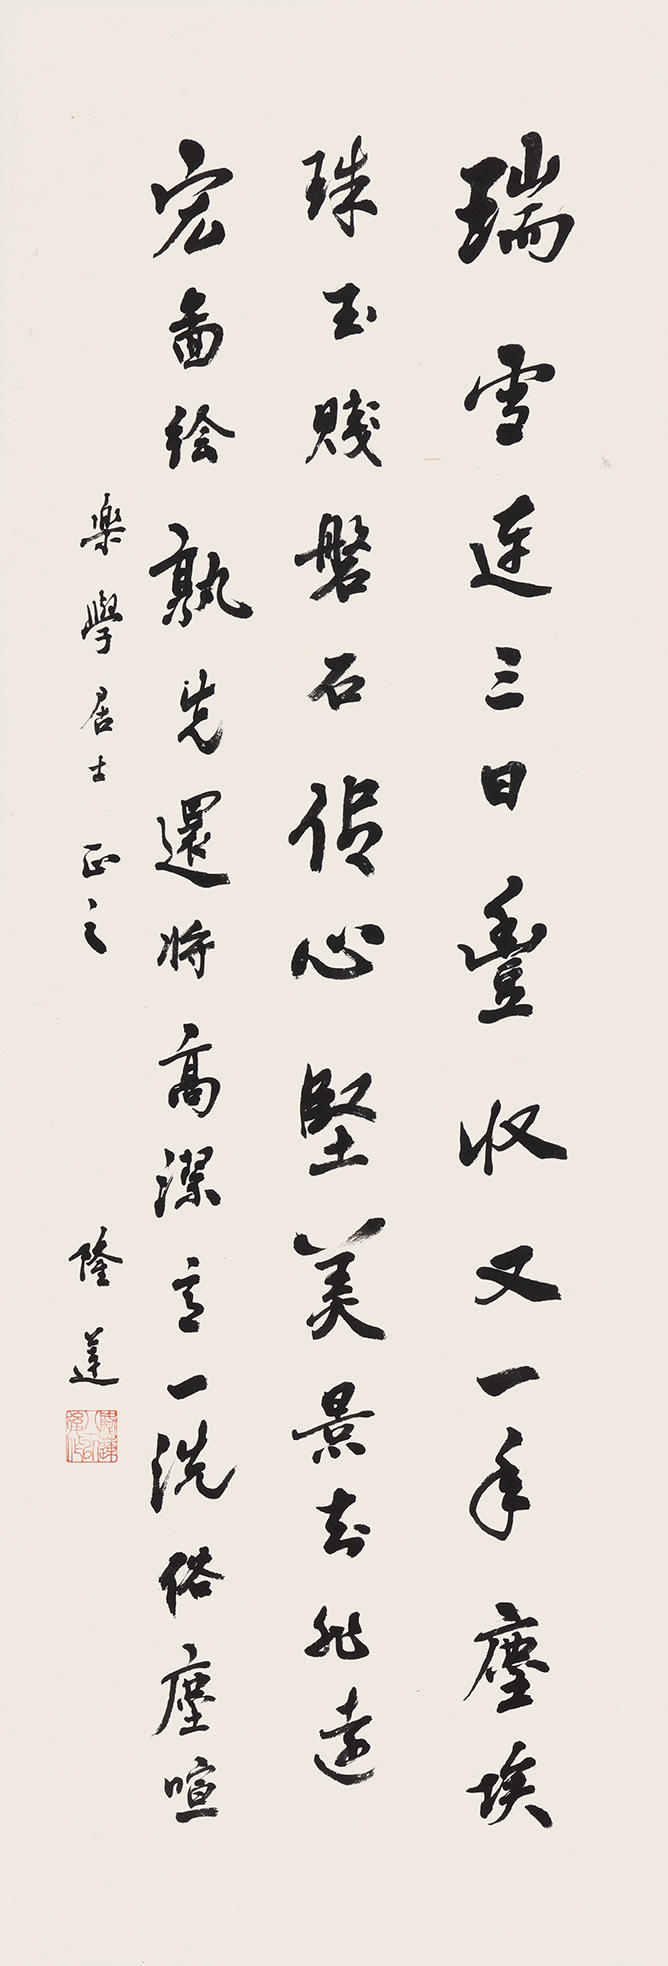 瑞雪連三日豐收又一年塵埃
珠玉賤磐石信心堅美景知非遠
宏圖绘孰先還将高潔意一洗俗塵喧
樂學居士 正之 隆蓮